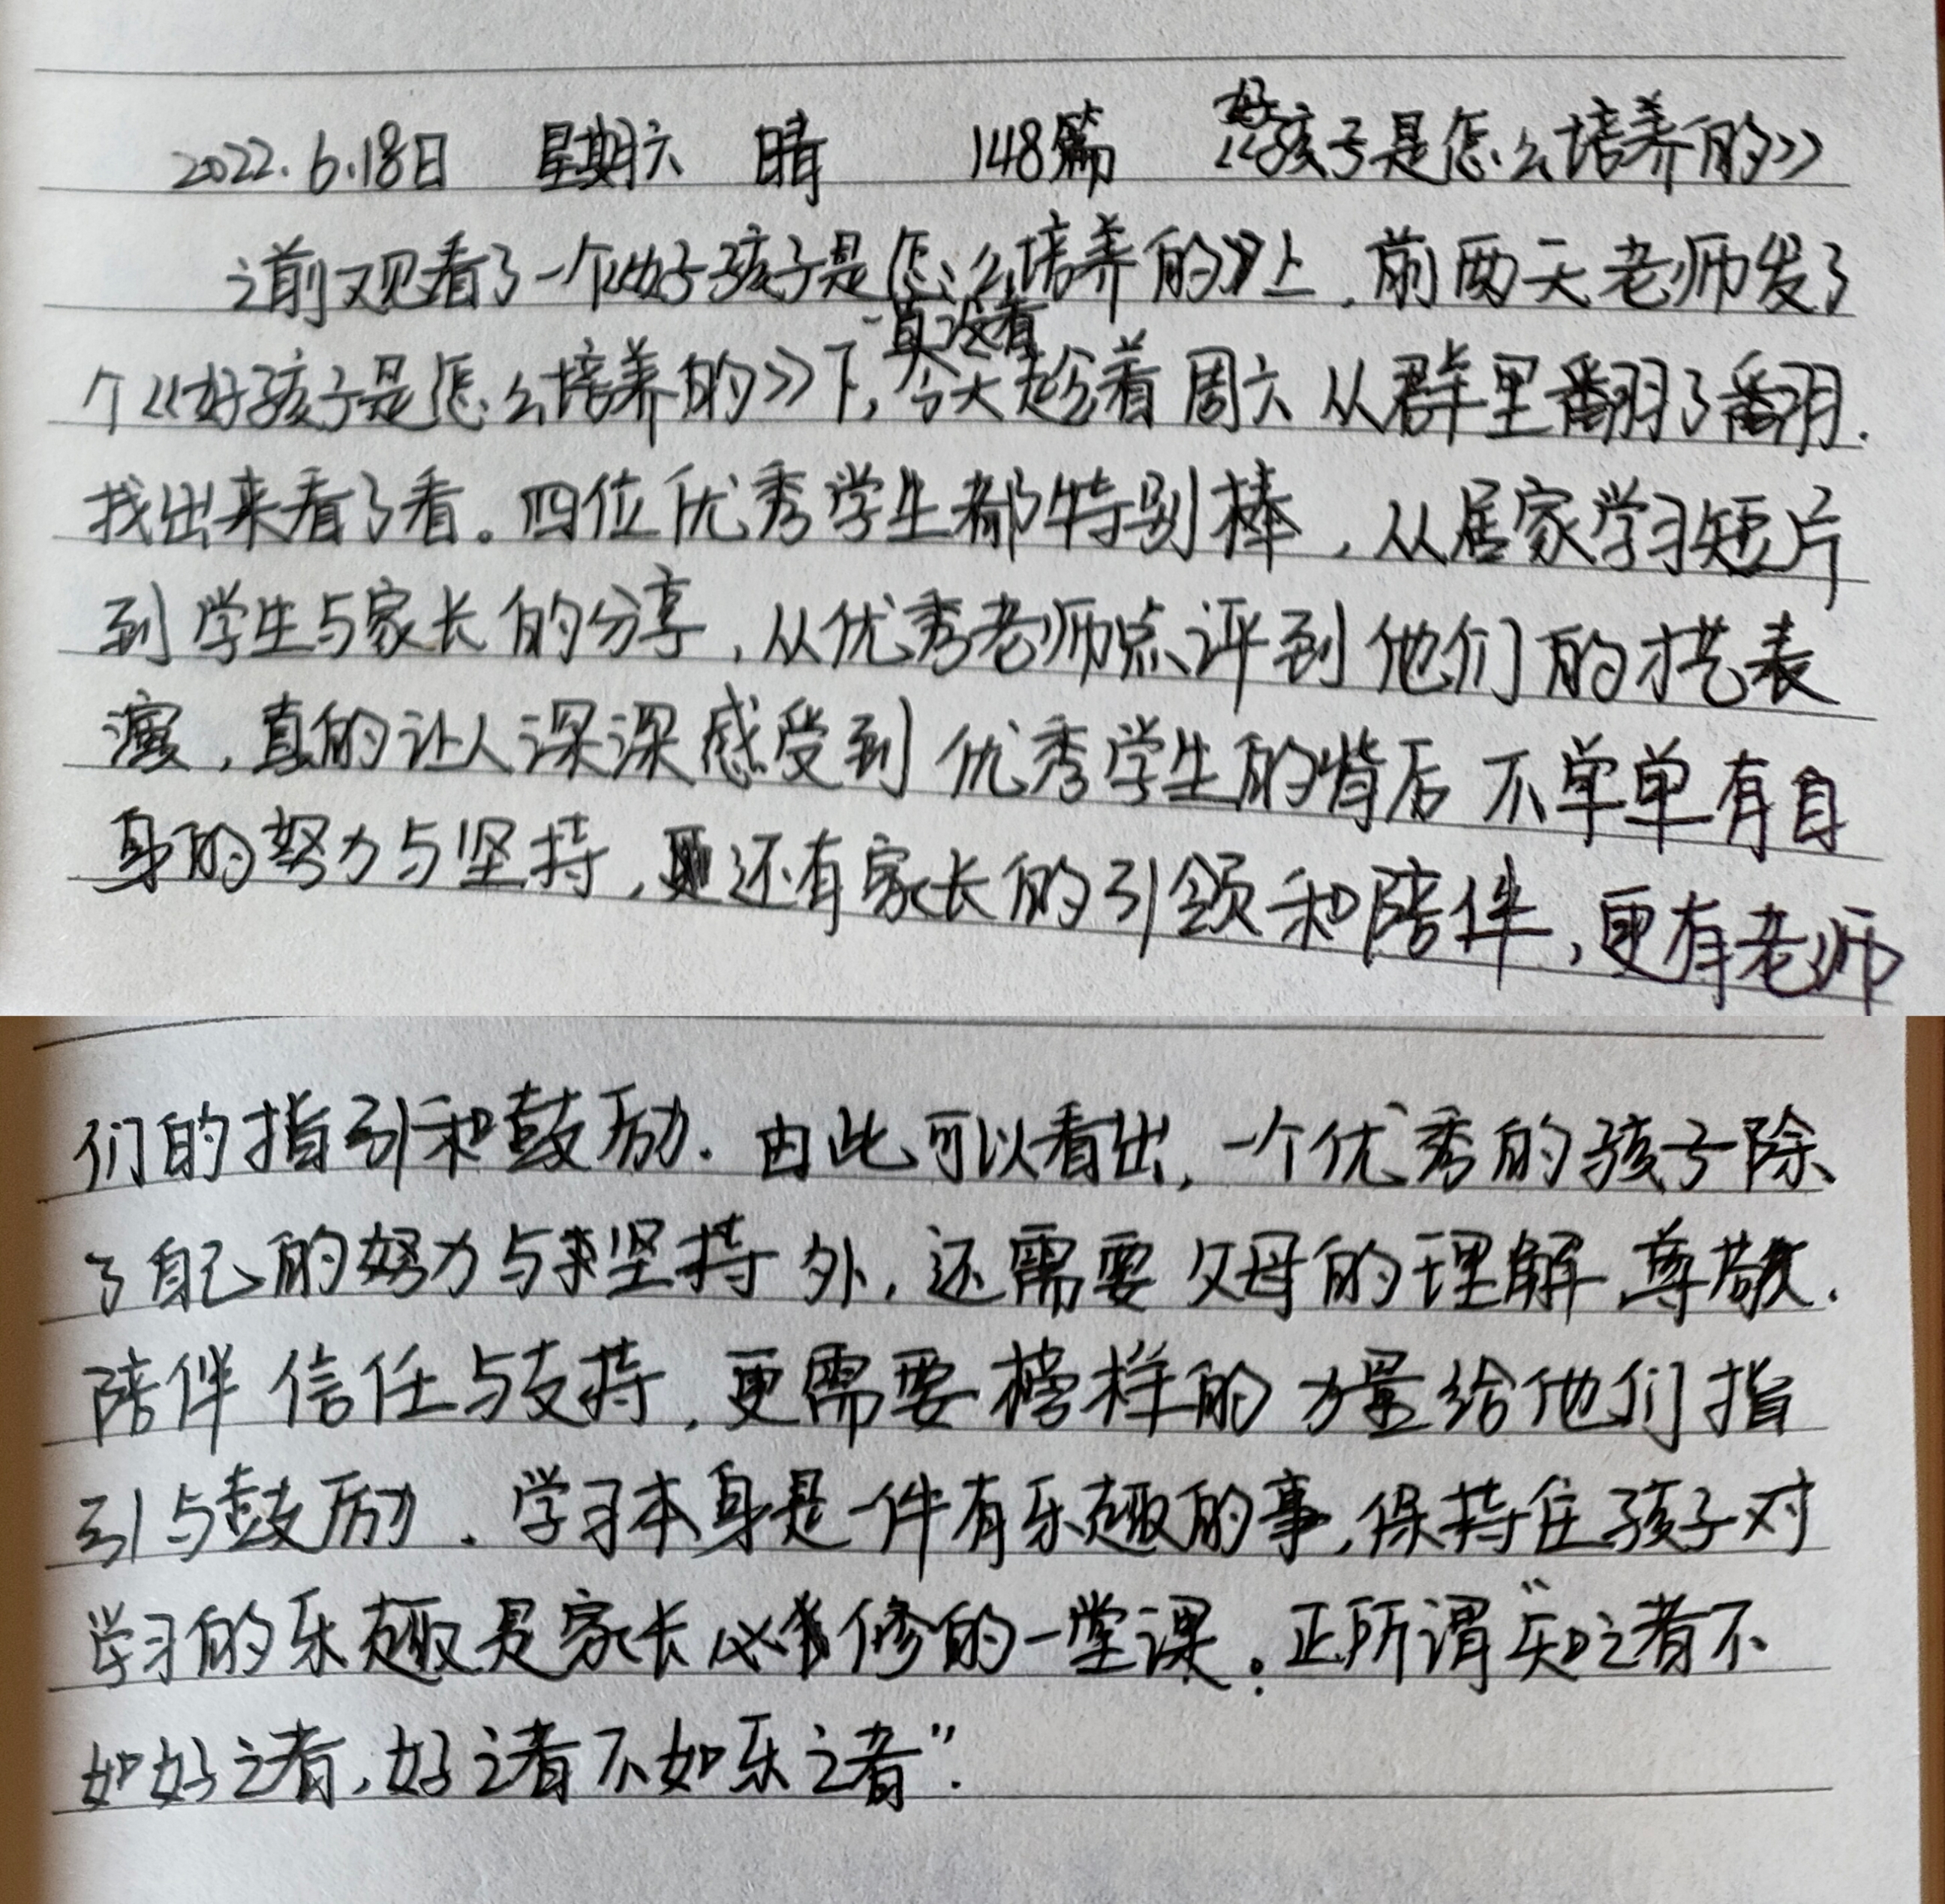 2022.6.18日 星期六 晴 148篇 《好孩子是怎么培养的》
之前观看了一个《好孩子是怎么培养的》上,前两天老师发了
一直没看
个《好孩子是怎么培养的》下,今天趁着周六从群里翻了翻.
找出来看了看。四位优秀学生都特别棒,从居家学习短片
到学生与家长的分享,从优秀老师点评到他们的才艺表
演,真的让人深深感受到优秀学生的背后不单单有自
身的努力与坚持,还有家长的引领和陪伴,更有老师
们的指引和鼓励.由此可以看出,一个优秀的孩子除
了自己的努力与坚持外,还需要父母的理解、尊敬.
陪伴信任与支持,更需要榜样的力量给他们指
引与鼓励.学习本身是一件有乐趣的事,保持住孩子对
学习的乐趣是家长必修的一堂课。正所谓“知之者不
如好之者,好之者不如乐之者”.